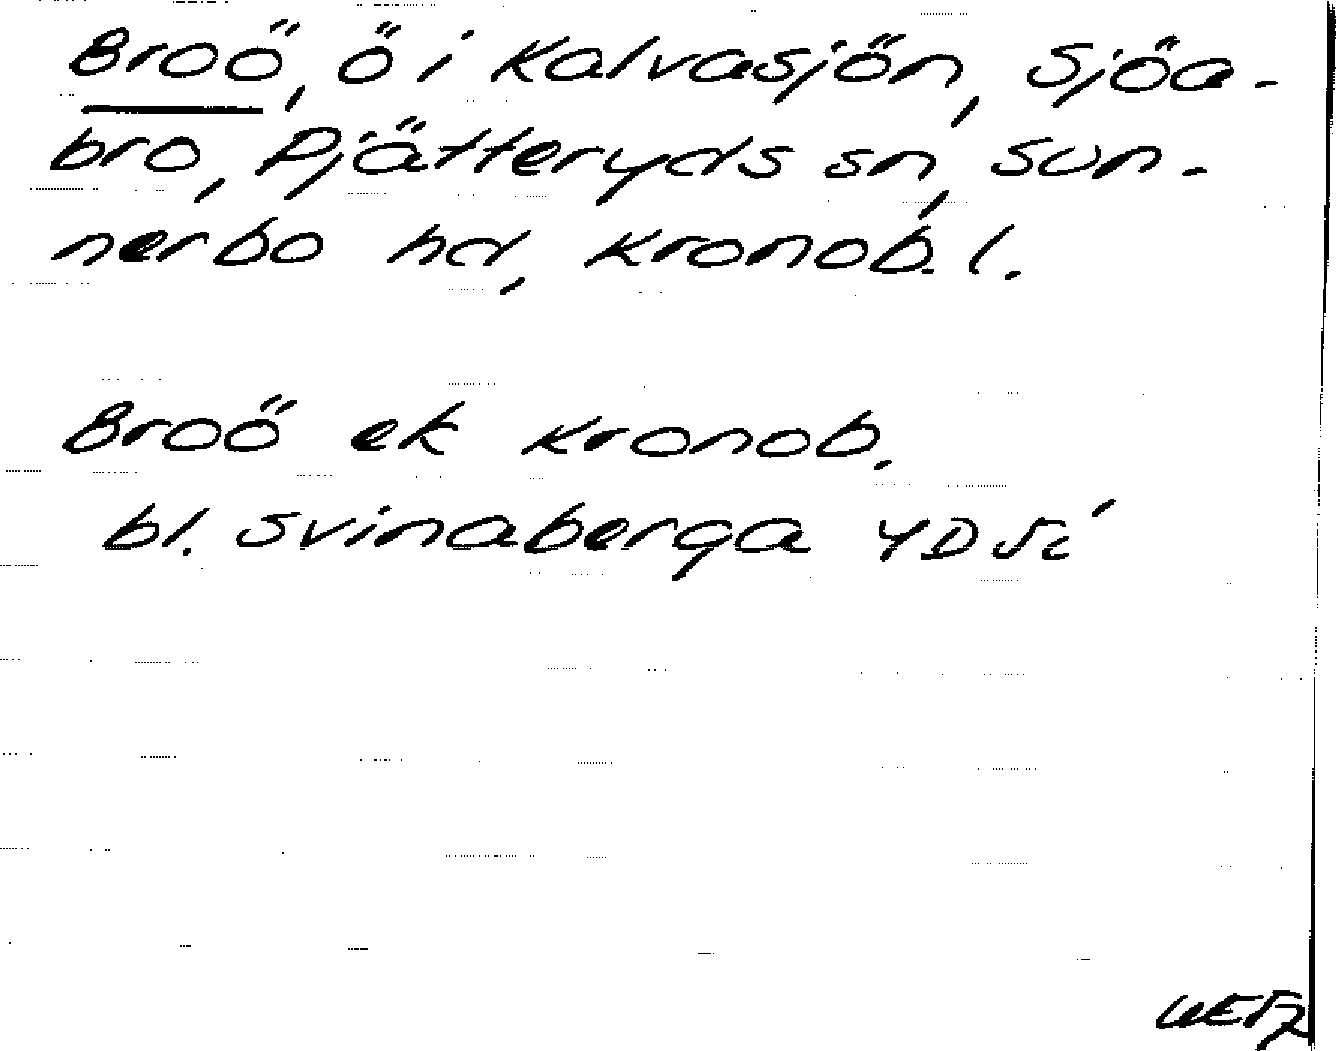 Broö, ö i Kalvasjön, Sjöa-
bro, Pjätteryds sn, Sun-
nerbo hd, Kronob. l.
Broö ek Kronob.
bl. Svinaberga 4D